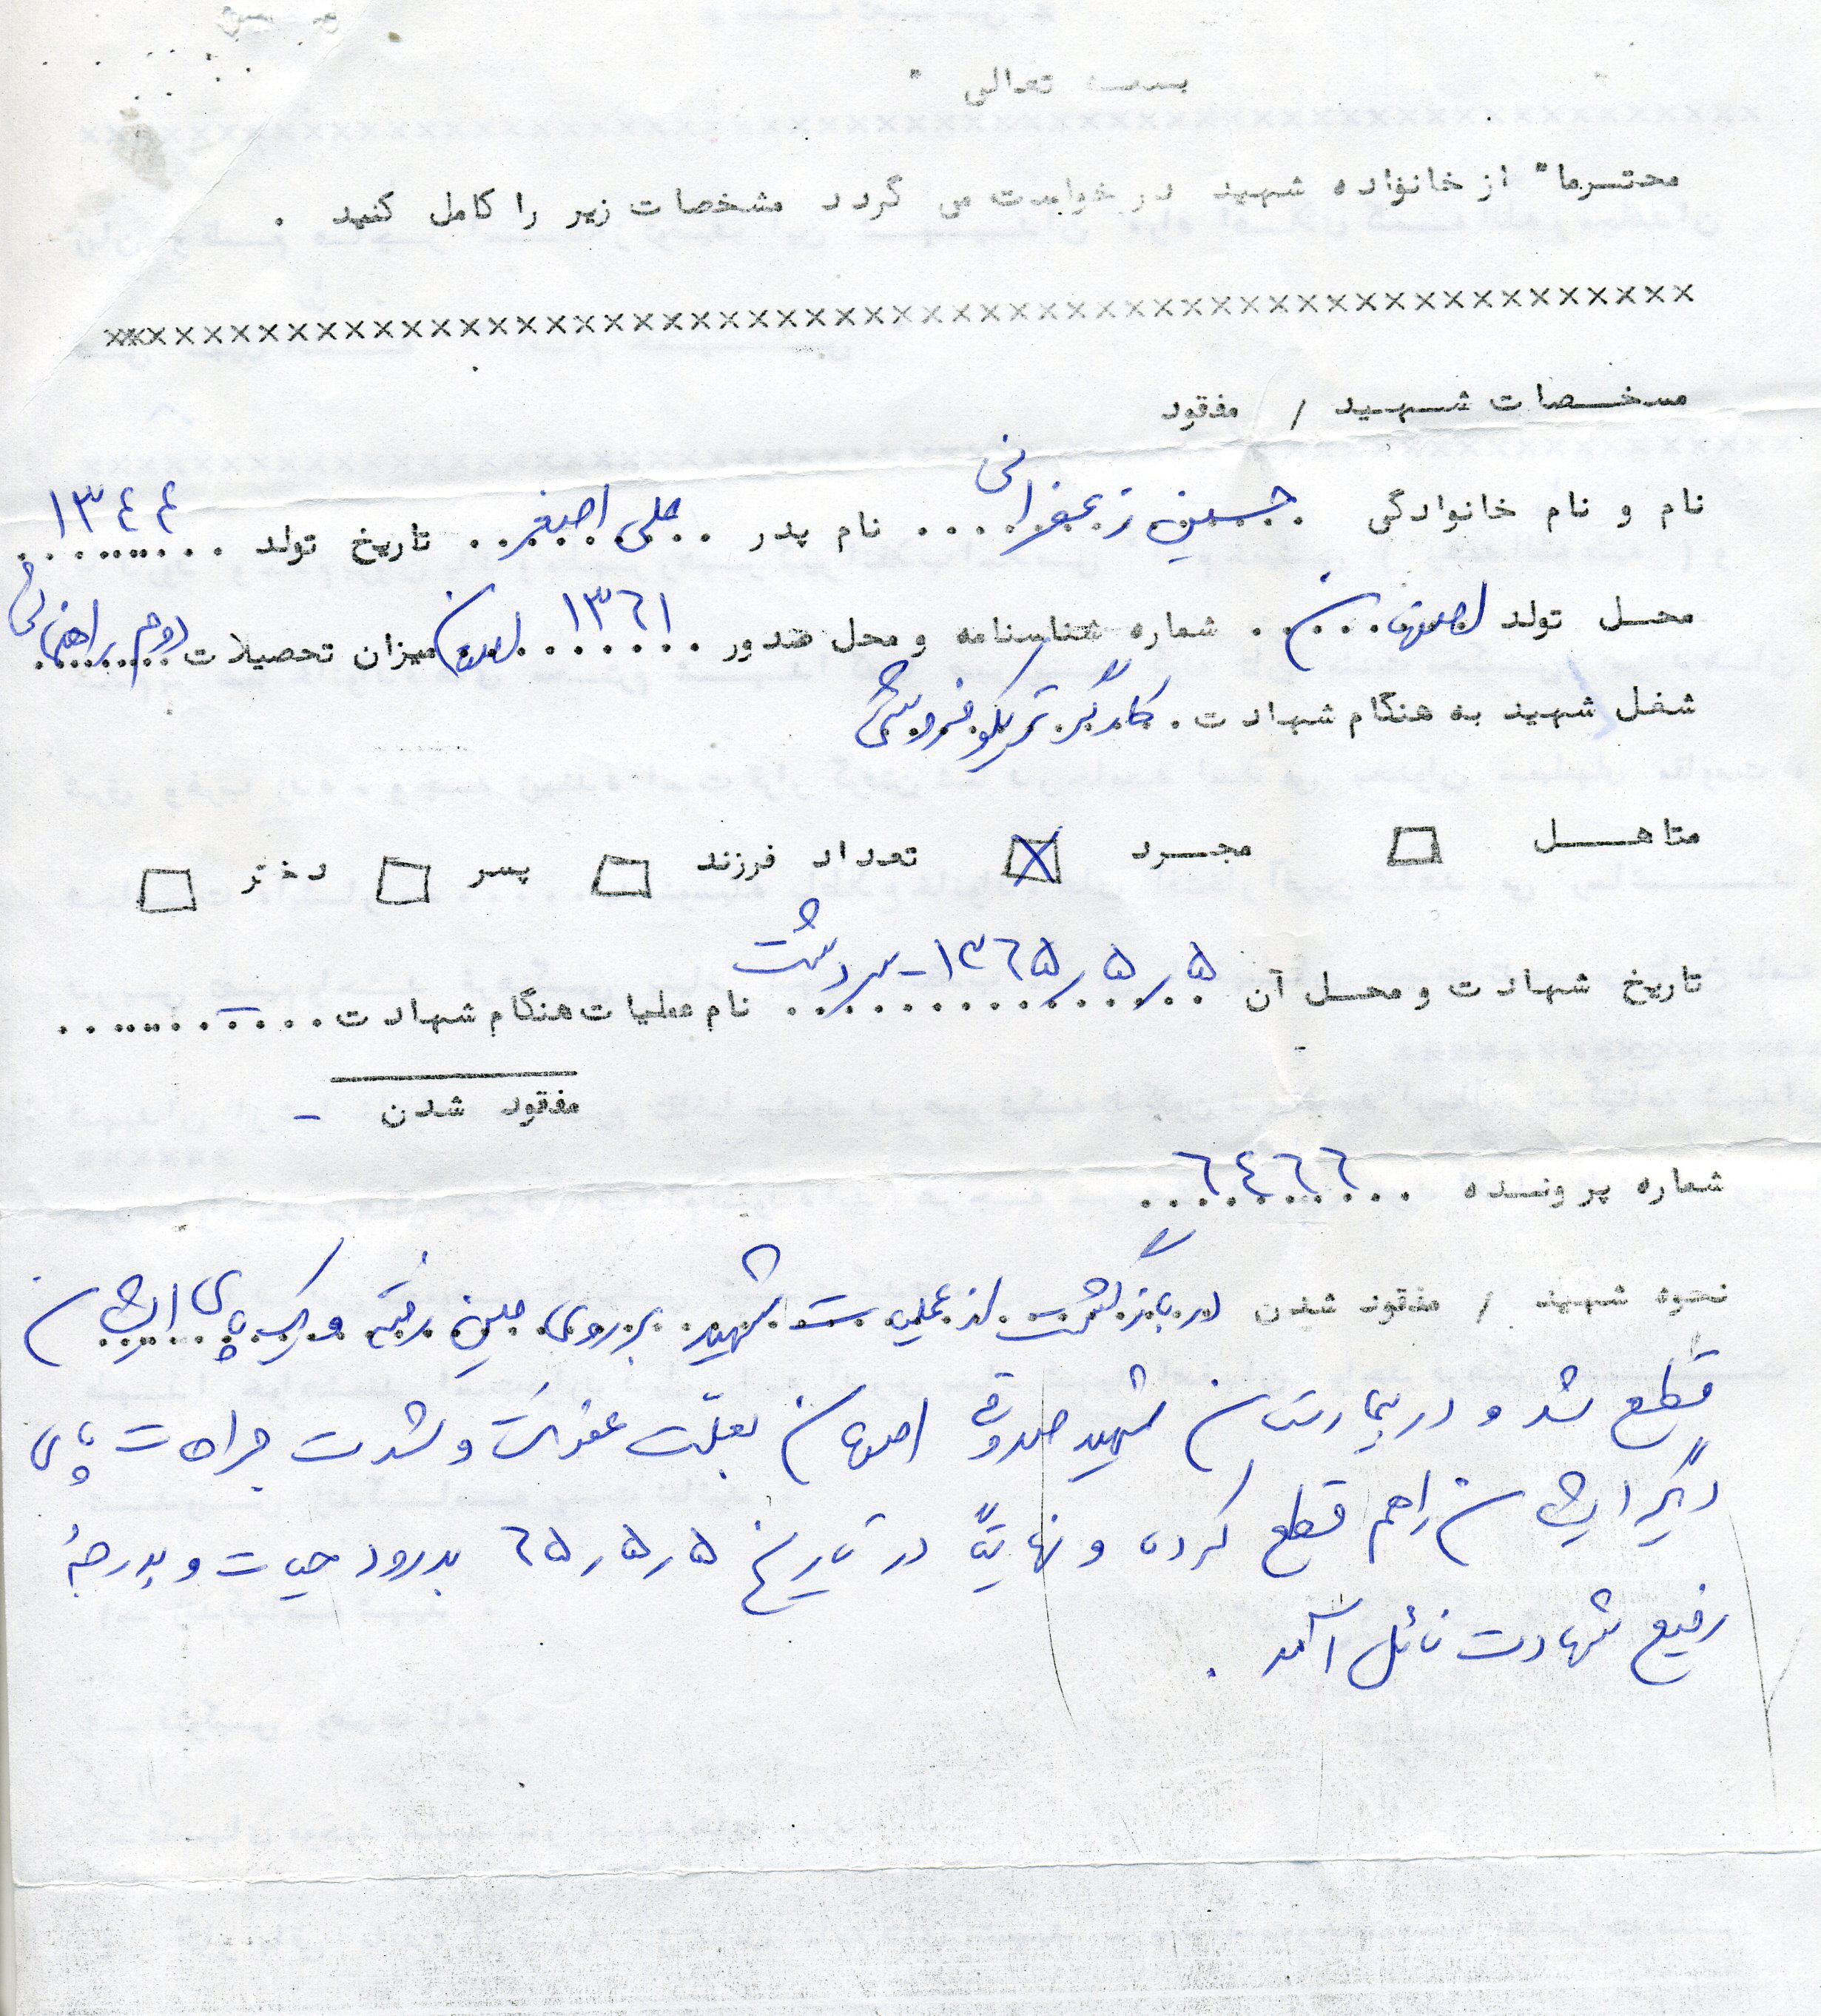 بسمه تعالی "
محترما" از خانواده شهید درخواست می گردد مشخصات زیر را کامل کنید .
××××××××××××××××××××××××××××××××××××××××××××××××××××××××
مشخصات شهید / مفقود
نام و نام خانوادگی حسین زعفرانی .... نام پدر .. علی اصغر .. تاریخ تولد ۱۳٤٤
محل تولد اصفهان .. شماره شناسنامه و محل صدور ۱۳٦۱ اصفهان میزان تحصیلات دوم راهنمائی
شغل شهید به هنگام شهادت . کارگر تریکو فروشی
متاهل □ مجرد ☒ تعداد فرزند □ پسر □ دختر □
تاریخ شهادت و محل آن ۱۳٦۵/۵/۵ - سردشت نام عملیات هنگام شهادت ..... –
مفقود شدن –
شماره پرونده ٦٤٦٦
نحوه شهید / مفقود شدن در بازگشت از عملیات شهید بر روی مین رفته و یک پای ایشان
قطع شد و در بیمارستان شهید صدوقی اصفهان بعلت عفونت و شدت جراحات پای
دیگر ایشان را هم قطع کرده و نهایتاً در تاریخ ٦۵/۵/۵ بدرود حیات و بدرجهٔ
رفیع شهادت نائل آمد .